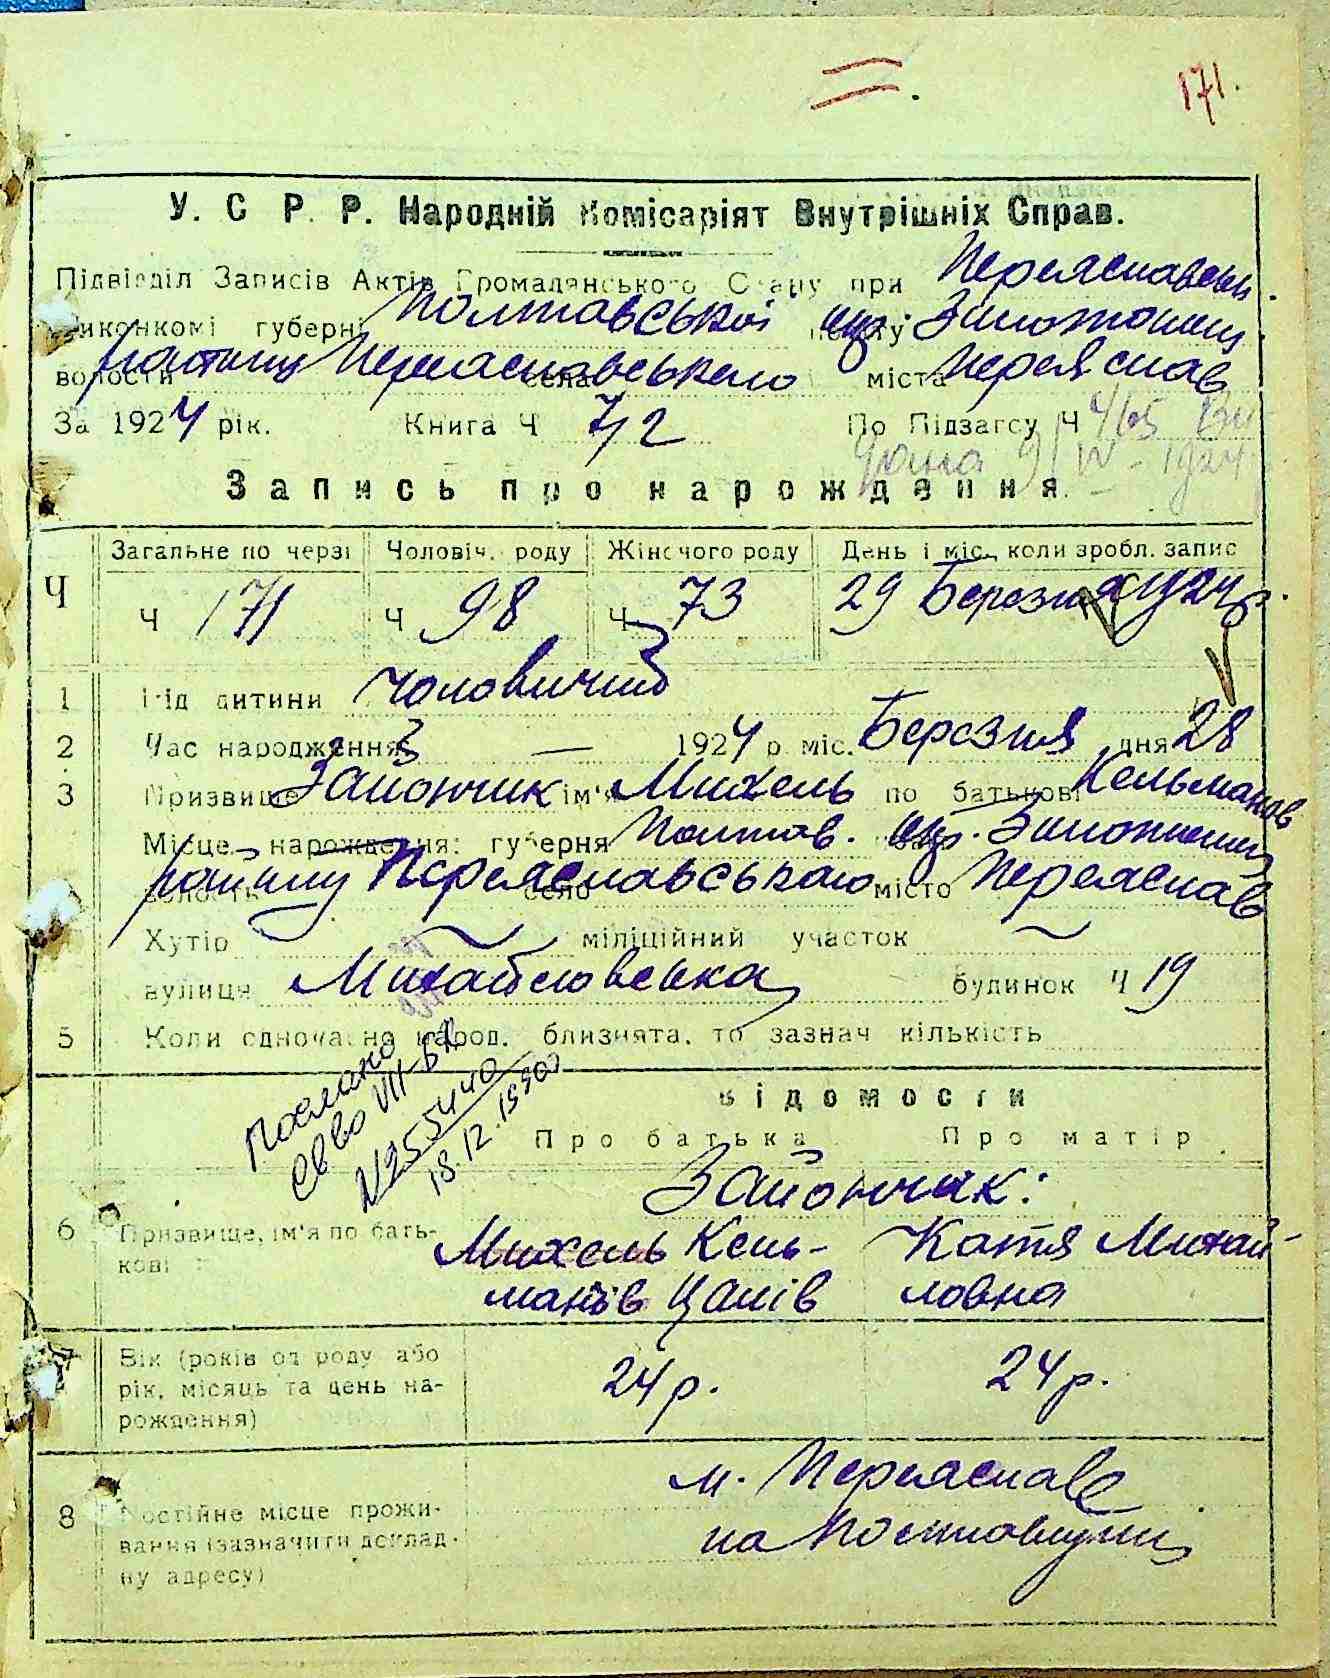 171.
У. С. Р. Р. Народній Комісаріят Внутрішніх Справ.
Підвідділ Записів Актів Громадянського Стану при Переяславськ.
виконкомі губерні Полтавської повіту окр. Золотоношськ
волости району Переяславського села міста Переяслав
За 1924 рік. Книга Ч 7/2 По Підзагсу Ч 465
1924
Запись про народження
Ч Загальне по черзі Чоловіч. роду Жіночого роду День і міс., коли зробл. запис
Ч 171 Ч 98 Ч 73 29 Березня 1924 р.
1 Рід дитини чоловичий
2 Час народження 1924 р. міс. Березня дня 28
3 Призвище Зайончик ім'я Михель по батькові Кельманов
Місце народження: губерня Полтав. окр. Золотоношськ
волость району Переяславського село місто Переяслав
Хутір міліційний участок
вулиця Михайловська будинок Ч 19
5 Коли одночасно народ. близнята, то зазнач кількість
Послано
VII-БК
N255440
18.12.1950
Відомости
Про батька Про матір
Зайончик:
6 Призвище, ім'я по бать- Михель Кель- Катя Михай-
кові манов ловна
7 Вік (років од роду або
рік, місяць та день на- 24 р. 24 р.
рождення)
м. Переяслав
8 Постійне місце прожи-
вання (зазначити доклад- на
ну адресу)